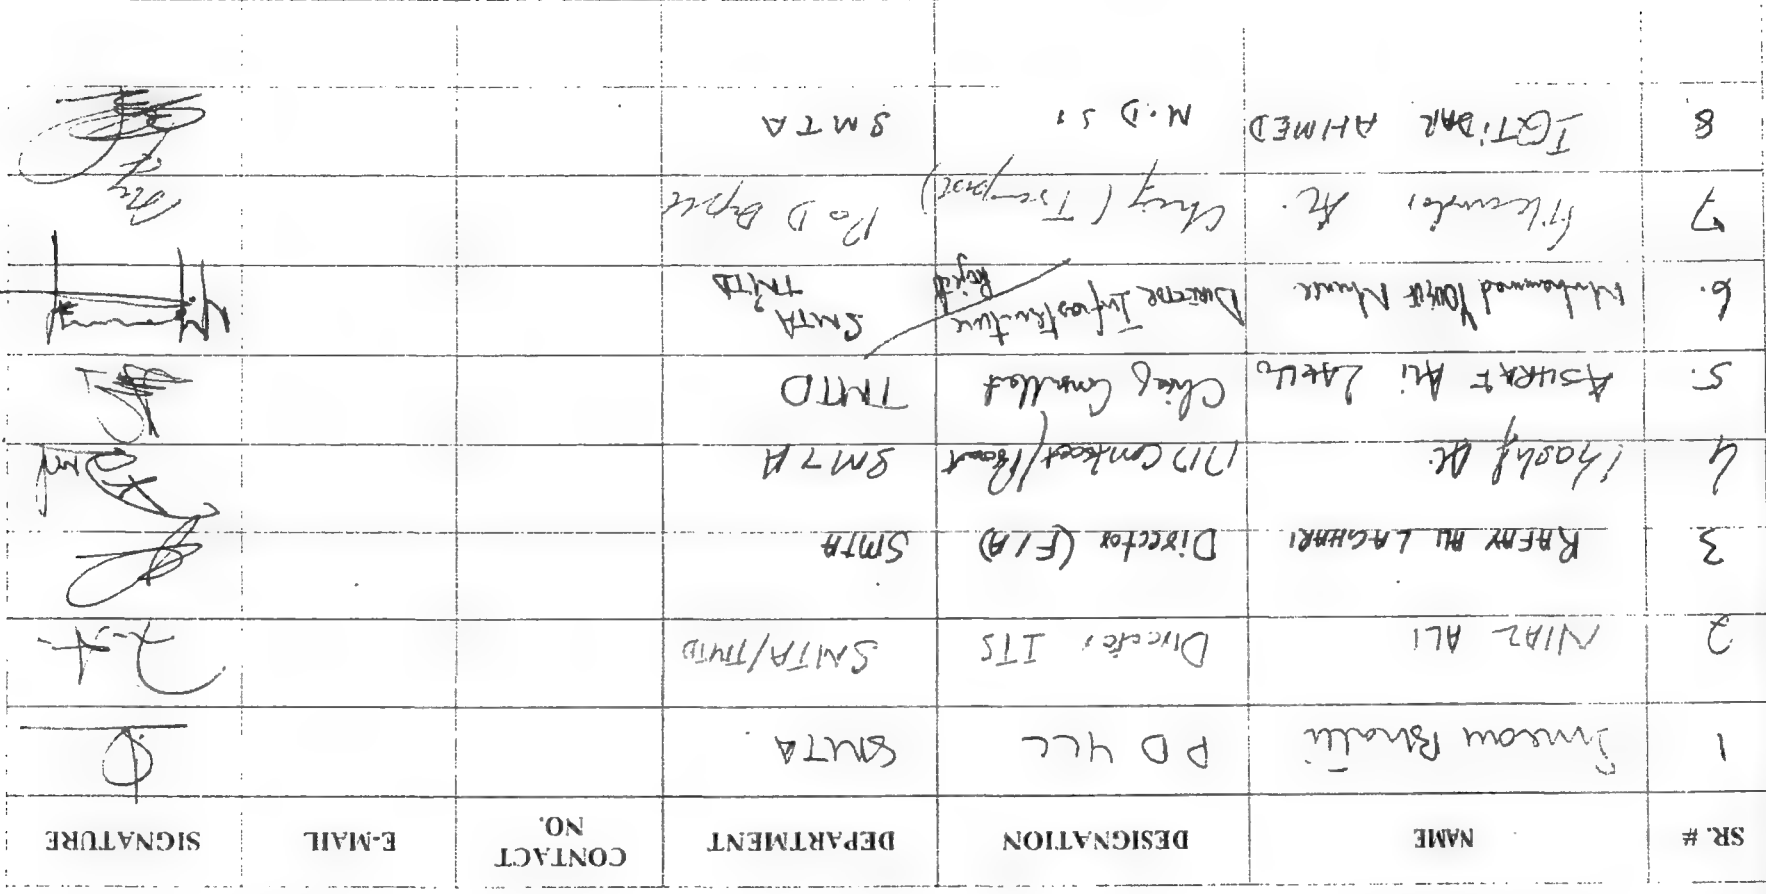 SR. # NAME DESIGNATION DEPARTMENT CONTACT NO. E-MAIL SIGNATURE
1 Imran Bhatti P D YLC SMTA
2 NIAZ ALI Director ITS SMTA/TMTD
3 RAFAY ALI LAGHARI Director (F/A) SMTA
4 Kashif Ali DD Contract/ SMTA
5. ASHRAF Ali Chief TMTD
6. Muhammad Yousif DIRECTOR Infrastructure Project SMTA, TMTD
7 Ali Chief (Transport) P&D Deptt
8 IQTIDAR AHMED M.D SMTA